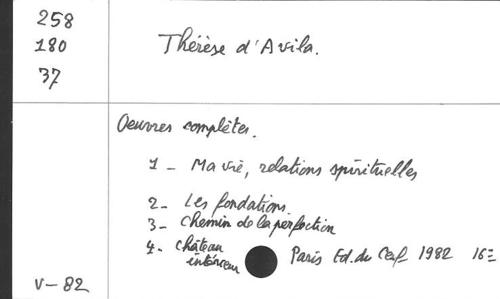 258
180
37
Thérèse d'Avila.
Oeuvres complètes.
1 - Ma vie, relations spirituelles
2 - Les fondations.
3 - Chemin de la perfection
4 - Château intérieur
Paris Ed. du Cerf 1982 16=
V-82